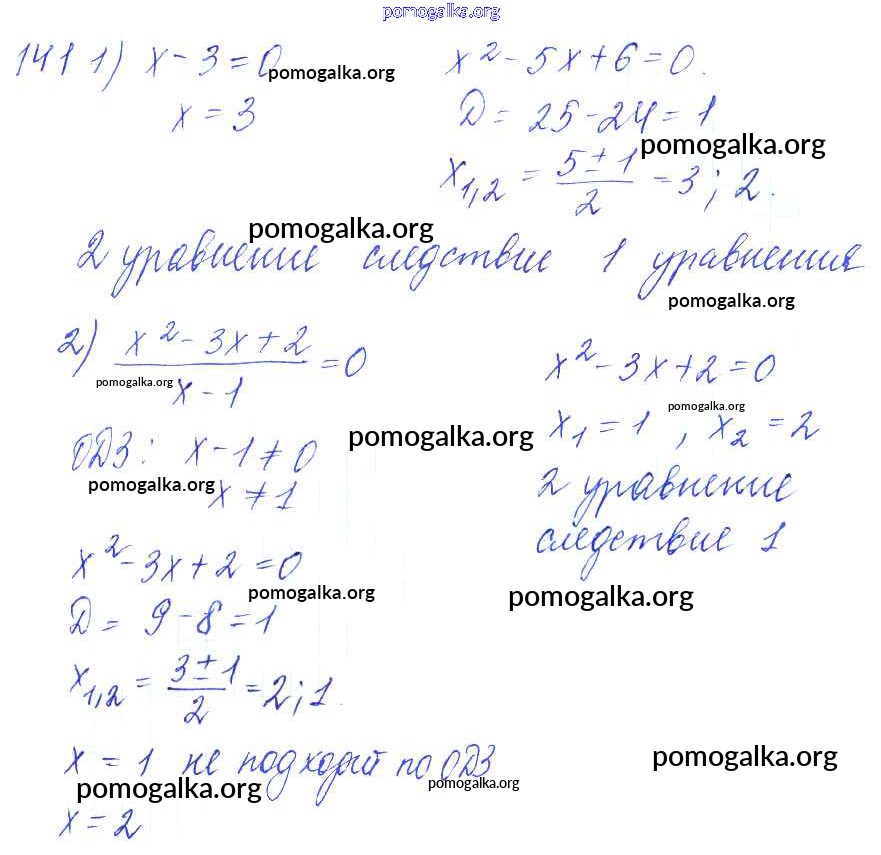 pomogalka.org
141 1) x - 3 = 0 pomogalka.org
x = 3
x² - 5x + 6 = 0.
D = 25 - 24 = 1
pomogalka.org
x₁,₂ = (5 ± 1)/2 = 3; 2.
pomogalka.org
2 уравнение следствие 1 уравнения
pomogalka.org
2) (x² - 3x + 2)/(x - 1) = 0
pomogalka.org
ОДЗ: x - 1 ≠ 0
pomogalka.org
pomogalka.org
x ≠ 1
x² - 3x + 2 = 0
pomogalka.org
D = 9 - 8 = 1
x₁,₂ = (3 ± 1)/2 = 2; 1.
x = 1 не подходит по ОДЗ
pomogalka.org
x = 2
x² - 3x + 2 = 0
pomogalka.org
x₁ = 1, x₂ = 2
2 уравнение
следствие 1
pomogalka.org
pomogalka.org
pomogalka.org